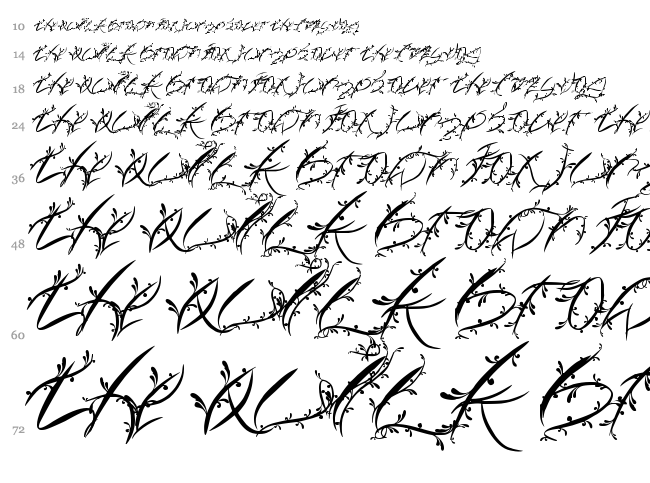 10 the quick brown fox jumps over the lazy dog
14 the quick brown fox jumps over the lazy dog
18 the quick brown fox jumps over the lazy dog
24 the quick brown fox jumps over the
36 the quick brown fox jum
48 the quick brown fo
60 the quick brow
72 the quick b